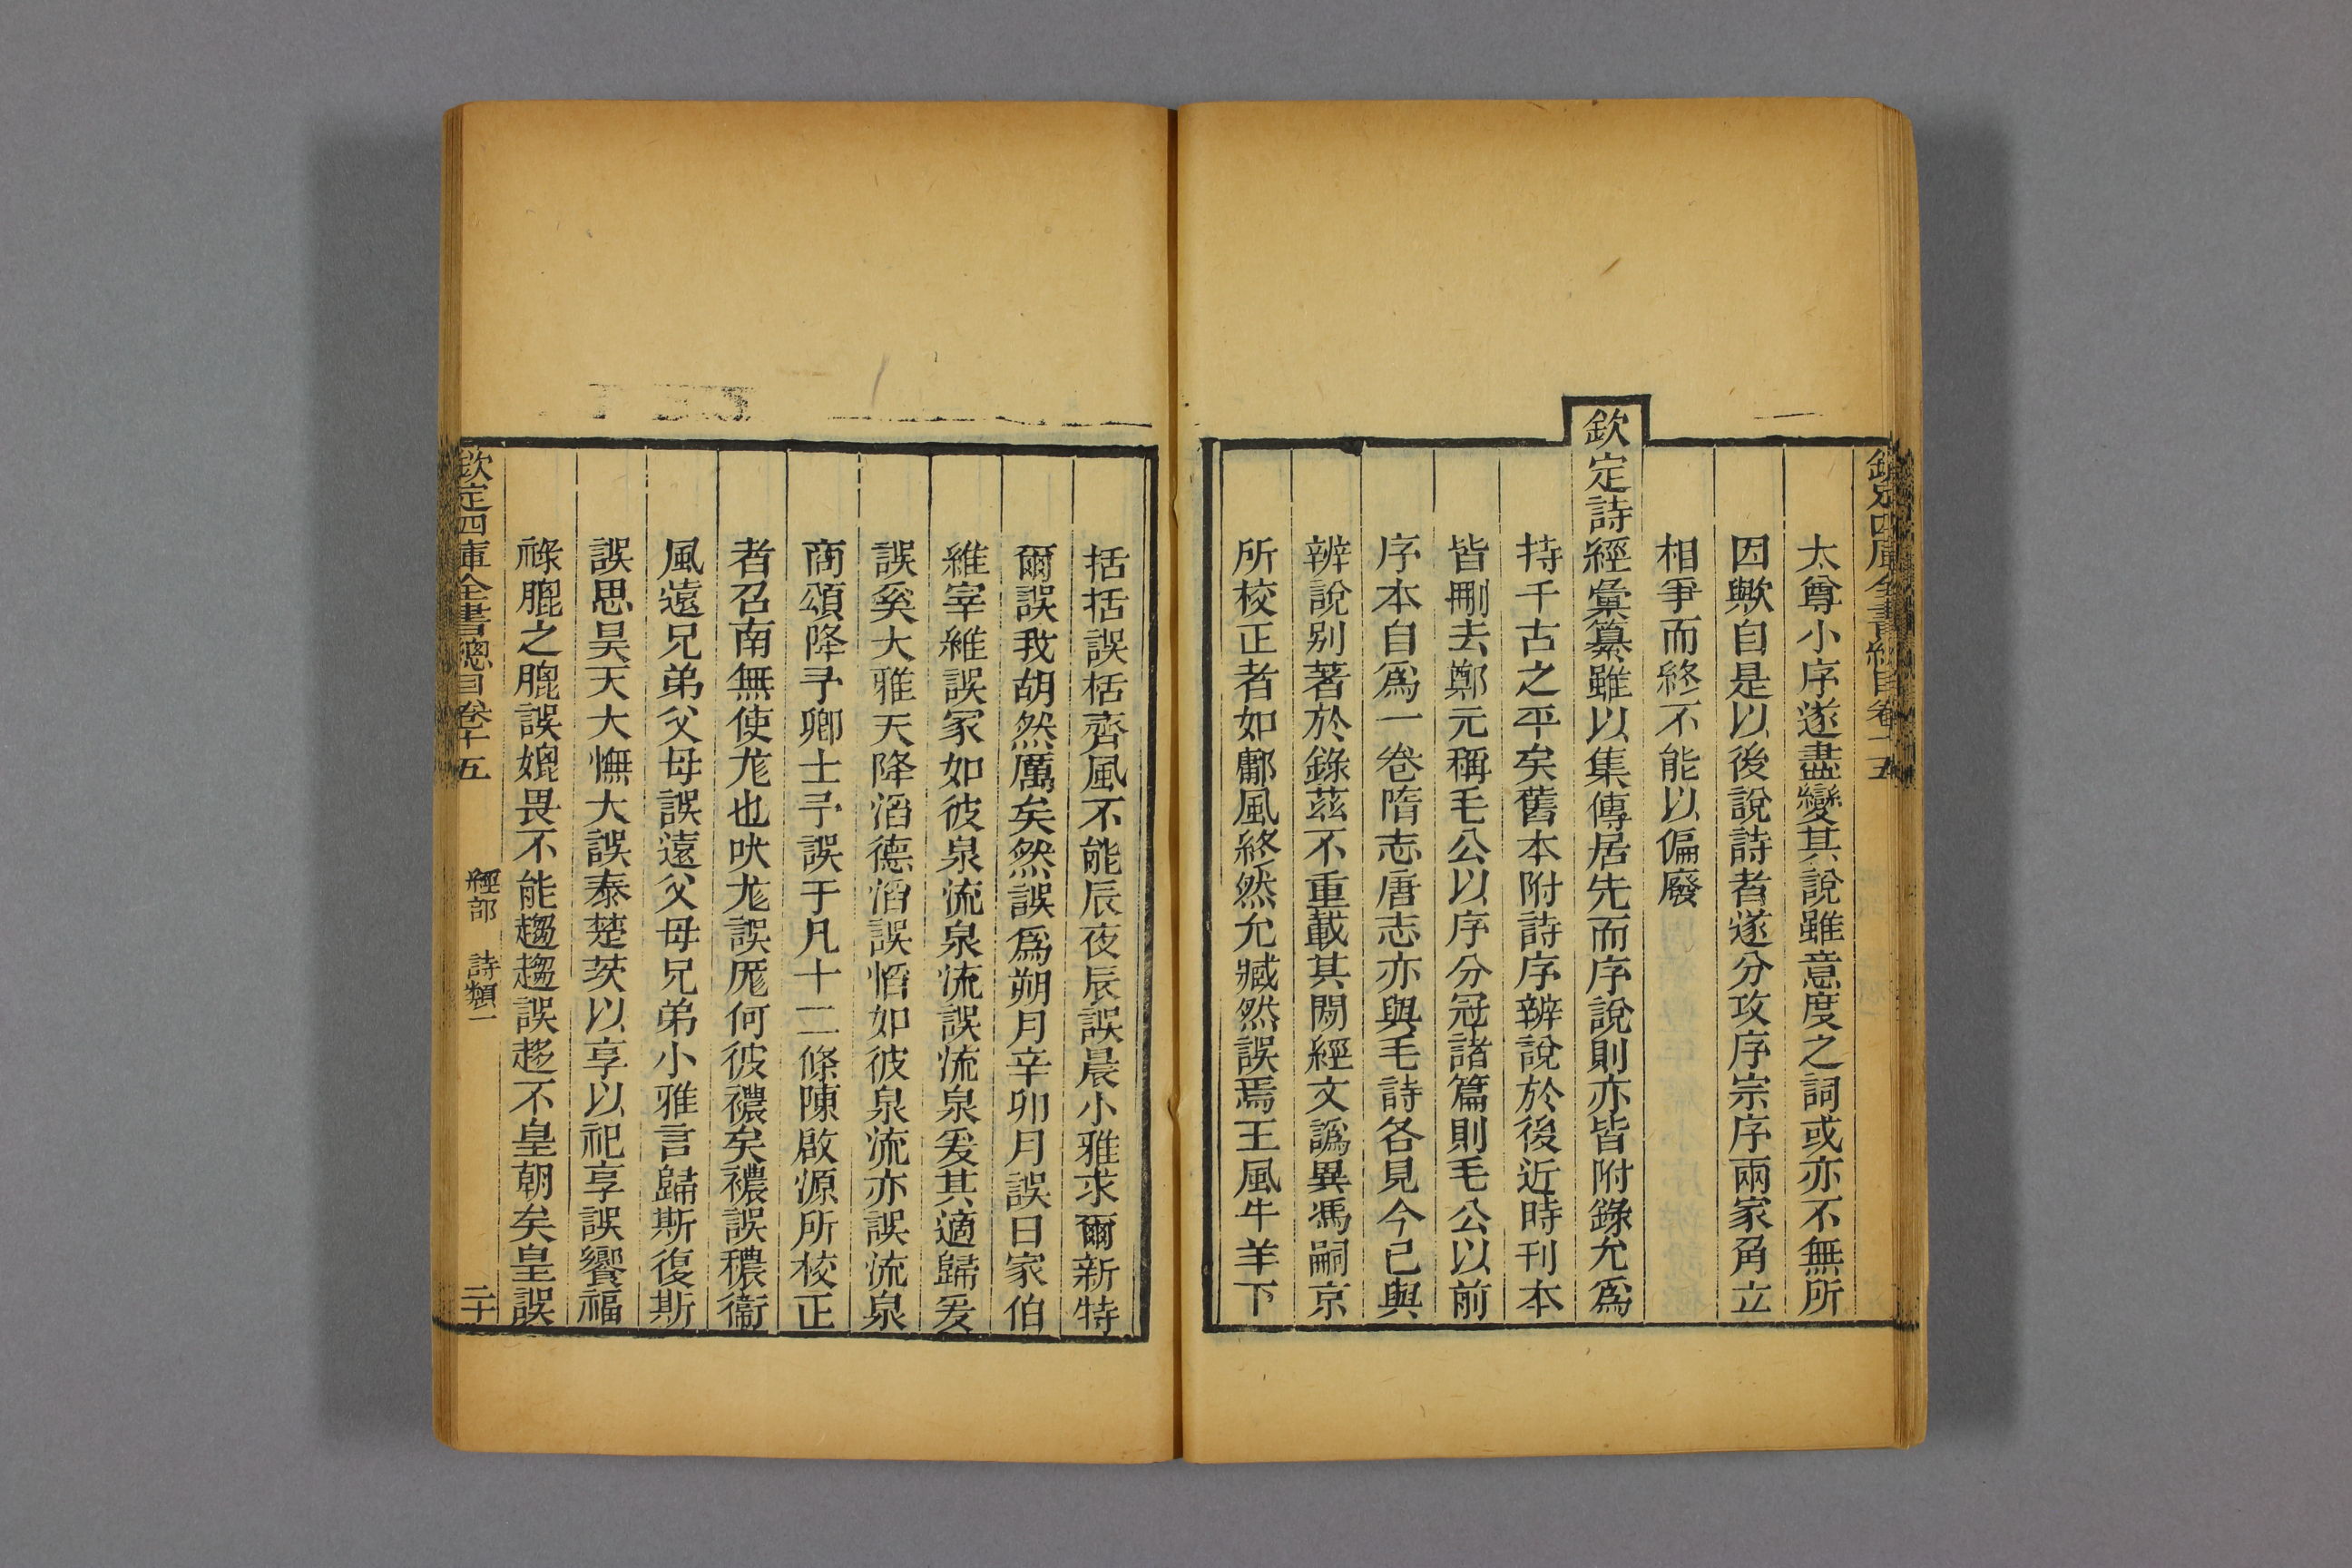 欽定四庫全書總目卷十五
太尊小序遂盡變其說雖意度之詞或亦不無所
因歟自是以後說詩者遂分攻序宗序兩家角立
相爭而終不能以偏廢
欽定詩經彙纂雖以集傳居先而序說則亦皆附錄允爲
持千古之平矣舊本附詩序辨說於後近時刊本
皆刪去鄭元稱毛公以序分冠諸篇則毛公以前
序本自爲一卷隋志唐志亦與毛詩各見今已與
辨說别著於錄茲不重載其閒經文譌異馮嗣京
所校正者如鄘風終然允臧然誤焉王風牛羊下
括括誤栝齊風不能辰夜辰誤晨小雅求爾新特
爾誤我胡然厲矣然誤爲朔月辛卯月誤日家伯
維宰維誤冢如彼泉流泉流誤流泉爰其適歸爰
誤奚大雅天降滔德滔誤慆如彼泉流亦誤流泉
商頌降予卿士予誤于凡十二條陳啟源所校正
者召南無使尨也吠尨誤厖何彼襛矣襛誤穠衞
風遠兄弟父母誤遠父母兄弟小雅言歸斯復斯
誤思昊天大憮大誤泰楚茨以享以祀享誤饗福
祿膍之膍誤媲畏不能趨趨誤趍不皇朝矣皇誤
欽定四庫全書總目卷十五
經部 詩類一
二十